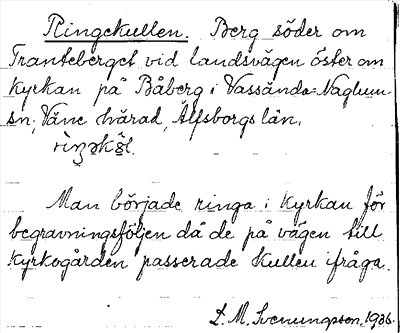 Ringekullen. Berg söder om
Tranteberget vid landsvägen öster om
kyrkan på Båberg i Vassända-Naglum-
sn, Väne härad, Älfsborgs län.
Man började ringa i kyrkan för
begravningsföljen då de på vägen till
kyrkogården passerade kullen ifråga.
L. M. Svenungsson, 1936.